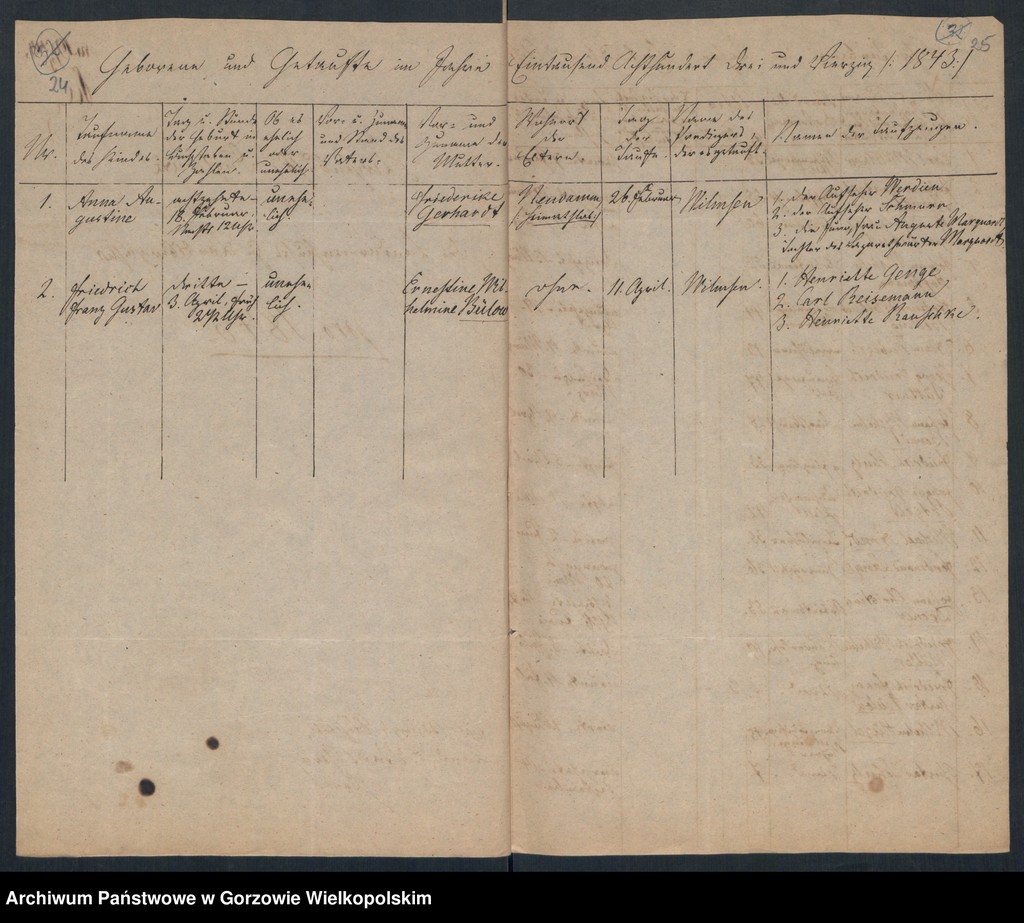 24
25
Geborene und Getaufte im Jahre Eintausend Achthundert drei und Vierzig /: 1843 :/
No.
Taufname
des Kindes.
Tag u. Stunde
der Geburt in
Buchstaben u.
Zahlen.
Ob es
ehelich
oder
unehelich
Vor- u. Zuname
und Stand des
Vaters.
Vor- und
Zuname der
Mutter.
Wohnort
der
Eltern.
Tag
der
Taufe.
Name des
Predigers,
der es getauft.
Namen der Taufzeugen.
1.
Anna Au-
gustine
achtzehnte –
18. Februar
Nachts 12 Uhr.
unehe-
lich.
Friederike
Gerhardt
Neudamm
26. Februar
Wilmsen
1. der Aufseher Werdin
2. der Aufseher
3. die Jungfrau Auguste Marquardt,
Tochter des Lazarethwärters Marquardt
2.
Friedrich
Franz Gustav
dritte –
3. April, früh
2 1/2 Uhr.
unehe-
lich.
Ernestine Wil-
helmine Bülow
ohne.
11. April.
Wilmsen.
1. Henriette Genge
2. Carl Reisemann
3. Henriette Rauschke.
Archiwum Państwowe w Gorzowie Wielkopolskim